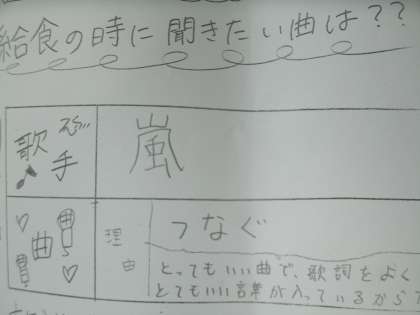 給食の時に聞きたい曲は??
歌手
嵐
曲
つなぐ
理由
とってもいい曲で、歌詞をよく
とてもいい言葉が入っているから